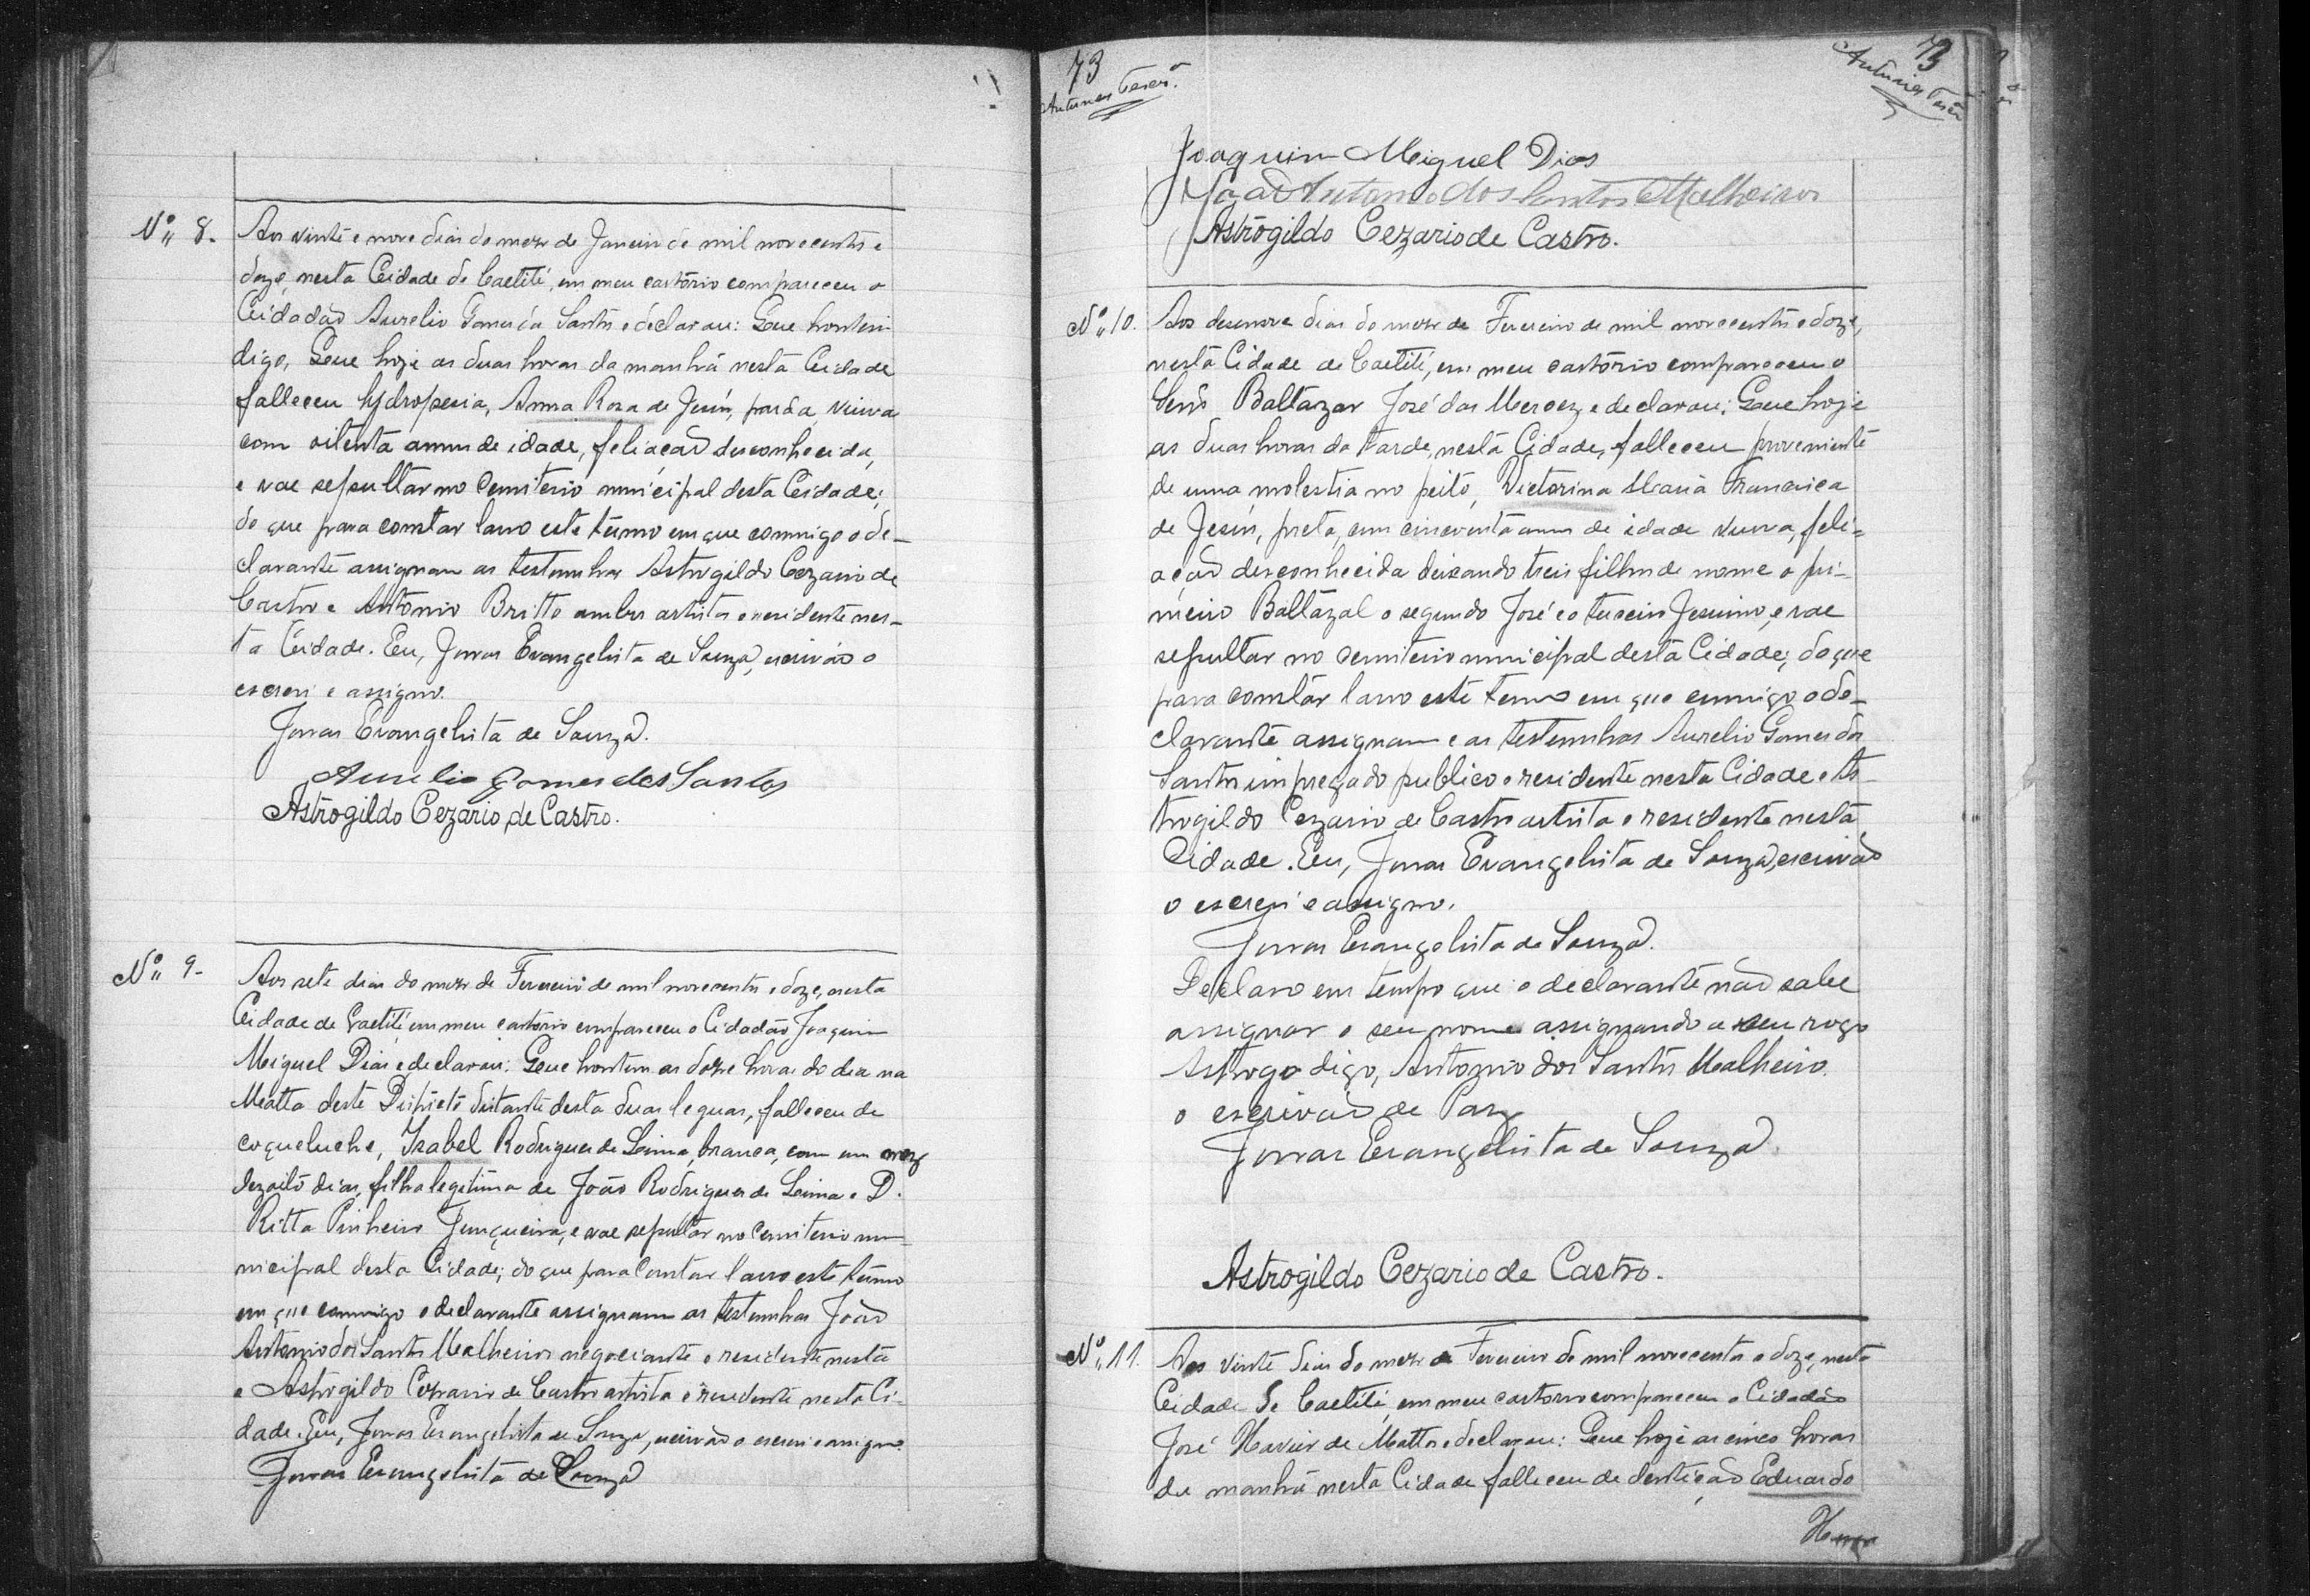 Nº 8.
Aos vinte e nove dias do mez de Janeiro de mil novecentos e
doze, nesta Cidade de Caetité, em meu cartório compareceu o
Cidadão Aurelio Gomes dos Santos e declarou: Que hontem
digo, Que hoje as duas horas da manhã nesta Cidade
falleceu hydropesia, Anna Roza de Jesús, parda, viuva
com oitenta annos de idade, feliação desconhecida,
e vae sepultar no Cemiterio municipal desta Cidade;
do que para constar lavro este termo em que commigo o de-
clarante assignam as testemunhas Astrogildo Cezario de
Castro e Antônio Britto ambos artistas e residente nes-
ta Cidade. Eu, Jonas Evangelista de Souza, escrivão o
escrevi e assigno.
Jonas Evangelista de Souza.
Aurelio Gomes dos Santos
Astrogildo Cezario de Castro.
Nº 9-
Aos sete dias do mez de Fevereiro de mil novecentos e doze, nesta
Cidade de Caetité, em meu cartorio compareceu o Cidadão Joaquim
Miguel Dias e declarou: Que hontem as doze horas do dia na
Matta deste Districto distante desta duas leguas, falleceu de
coqueluche, Izabel Rodrigues de Leima, branca, com um mez
dezoito dias, filha legitima de João Rodrigues de Leima e D.
Ritta Pinheiro Junqueira, e vae sepultar no Cemiterio mu-
nicipal desta Cidade; do que para constar lavro este termo
em que commigo o declarante assignam as testemunhas João
Antonio dos Santos Malheiros negociante e residente nesta
e Astrogildo Cezario de Castro artista e residente nesta Ci-
dade. Eu, Jonas Evangelista de Souza, escrivão o escrevi e assigno.
Jonas Evangelista de Souza
73
Antunes
73
Antunes
Joaquim Miguel Dias
João Antonio dos Santos Malheiros
Astrogildo Cezario de Castro.
Nº 10.
Aos desenove dias do mez de Fevereiro de mil novecentos e doze,
nesta Cidade de Caetité, em meu cartório compareceu o
Senr. Baltazar José das Mercez, e declarou: Que hoje
as duas horas da tarde, nesta Cidade, falleceu proveniente
de uma molestia no peito, Victorina Maria Francisca
de Jesús, preta, com cincoenta annos de idade viuva, feli-
ação desconhecida deixando treis filhos de nome o pri-
meiro Baltazal o segundo José e o terceiro Jesuino, e vae
sepultar no Cemiterio municipal desta Cidade; do que
para constar lavro este termo em que commigo o de-
clarante assignam e as testemunhas Aurelio Gomes dos
Santos impregado publico e residente nesta Cidade e As-
trogildo Cezario de Castro artista e residente nesta
Cidade. Eu, Jonas Evangelista de Souza, escrivão
o escrevi e assigno.
Jonas Evangelista de Souza.
Declaro em tempo que o declarante não sabe
assignar o seu nome assignando a seu rogo
Astrogo digo, Antonio dos Santos Malheiro.
o escrivão de Paz
Jonas Evangelista de Souza
Astrogildo Cezario de Castro.
Nº 11.
Aos vinte dias do mez de Fevereiro de mil novecentos e doze, nesta
Cidade de Caetité, em meu cartorio compareceu o Cidadão
José Xavier de Mattos e declarou: Que hoje as cinco horas
da manhã nesta Cidade falleceu de dentição Eduardo